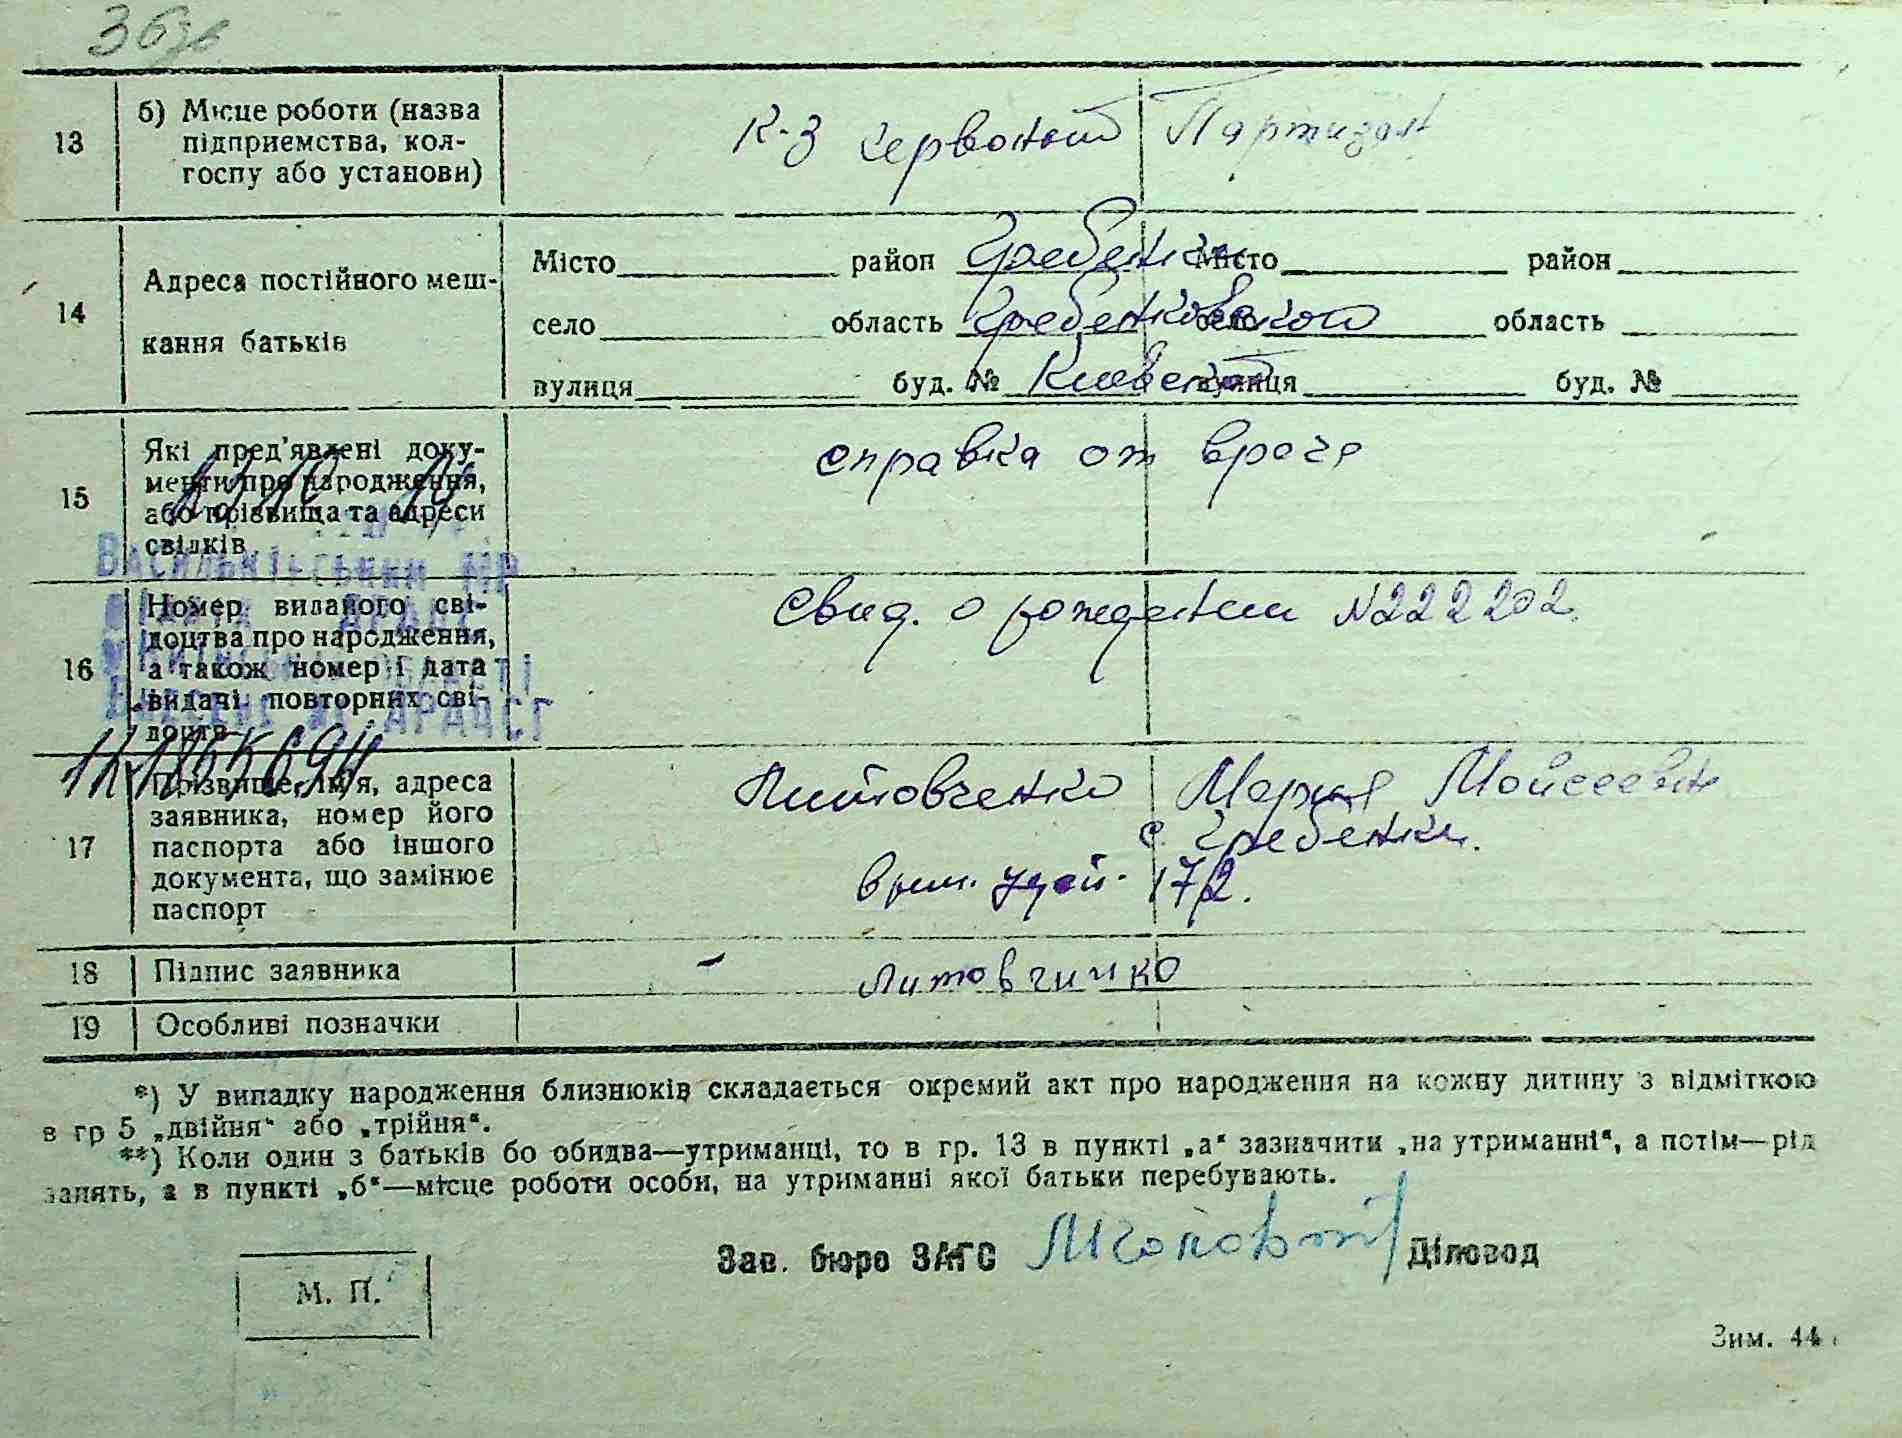 363в
13 б) Місце роботи (назва підприемства, колгоспу або установи) К-з Червоный Партизан
14 Адреса постійного мешкання батьків
Місто район Гребенки Місто район
село область Гребенковской село область
вулиця буд. № Киевской вулиця буд. №
15 Які пред'явлені документи про народження, або прізвища та адреси свідків справка от врача
Васильківський МР
16 Номер виданого свідоцтва про народження, а також номер і дата видачі повторних свідоцтв Свид. о рождении N222202.
ДРАЦСГ
17 Прізвище, ім'я, адреса заявника, номер його паспорта або іншого документа, що замінює паспорт Литовченко Мария Моисеевна
с. Гребенки.
врем. удой. 172.
18 Підпис заявника Литовчинко
19 Особливі позначки
*) У випадку народження близнюків складається окремий акт про народження на кожну дитину з відміткою
в гр 5 „двійня“ або „трійня“.
**) Коли один з батьків бо обидва—утриманці, то в гр. 13 в пункті „а“ зазначити „на утриманні“, а потім—рід
занять, а в пункті „б“—місце роботи особи, на утриманні якої батьки перебувають.
Зав. бюро ЗАГС Діловод
М. П.
Зим. 44